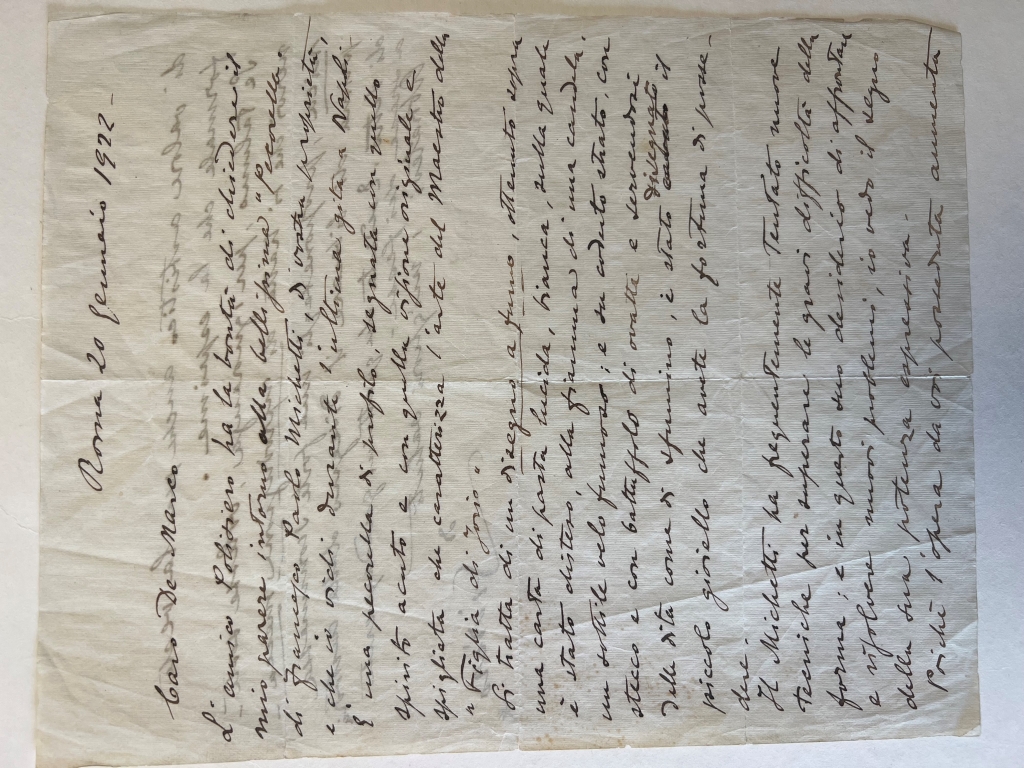 Roma 20 Gennaio 1922 -
Caro De Marco
L'amico Polidoro ha la bontà di chiedere il
mio parere intorno alla bellissima "Pecorella„
di Francesco Paolo Michetti, di vostra proprietà,
e che io vidi durante l'ultima gita a Napoli.
È una pecorella di profilo segnata in quello
spirito acuto e con quella visione originale e
spigliata che caratterizza l'arte del Maestro della
"Figlia di Jorio„
Si tratta di un disegno a fumo, ottenuto sopra
una carta di pasta lucida, bianca, sulla quale
è stato disteso, alla fiamma di una candela,
un sottile velo fumoso; e su codesto strato, con
stecco e con batuffolo di ovatta e servendosi
delle dita come di sfumino, è stato disegnato il
piccolo gioiello che avete la fortuna di posse-
dere.
Il Michetti ha frequentemente tentato nuove
tecniche per superare le gravi difficoltà della
forma; e in questo suo desiderio di affrontare
e risolvere nuovi problemi, io vedo il segno
della sua potenza espressiva.
Poichè l'opera da voi posseduta aumenta